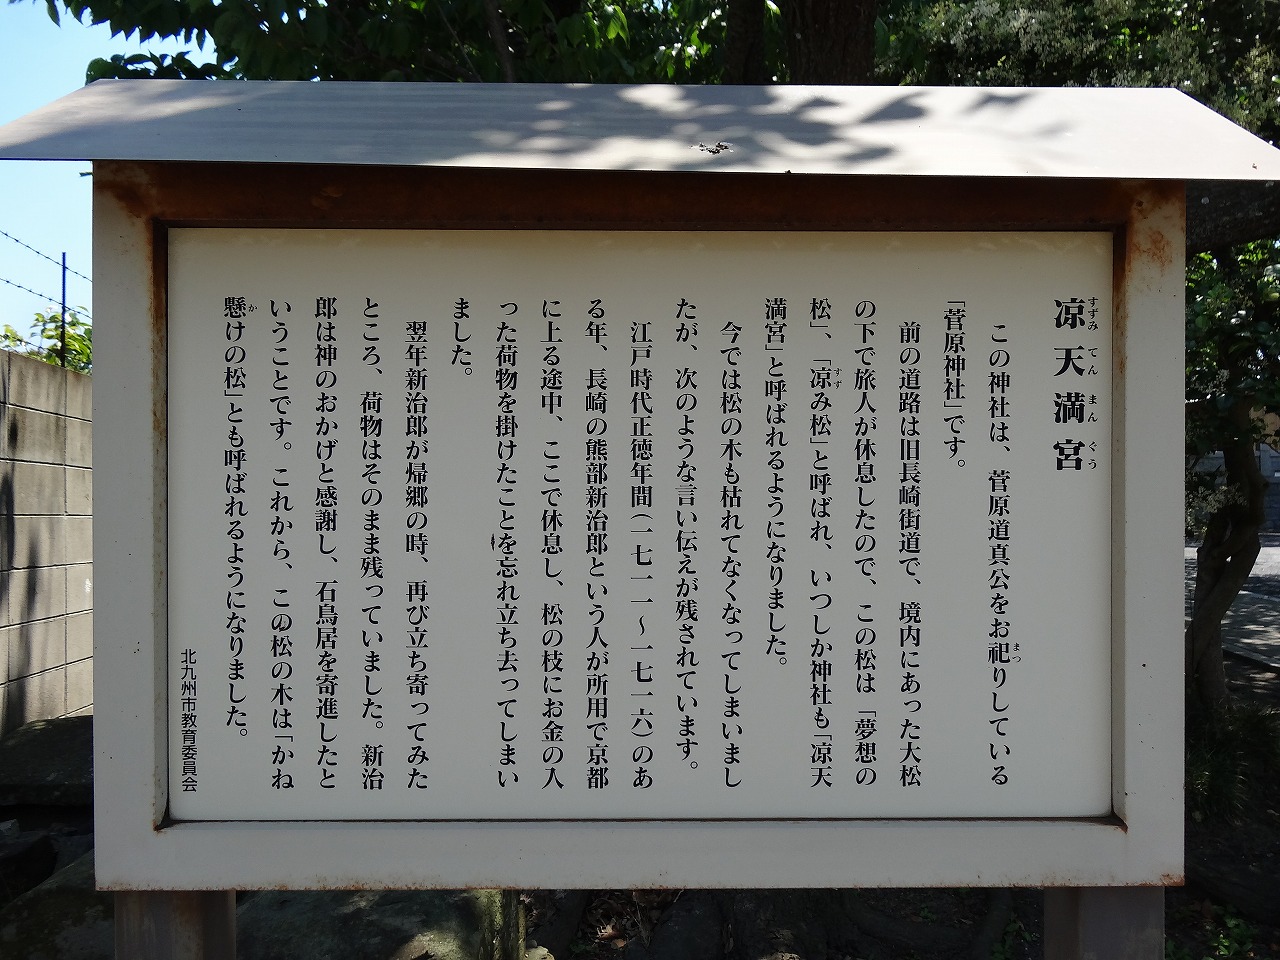 涼天満宮
すずみてんまんぐう
この神社は、菅原道真公をお祀りしている
まつ
「菅原神社」です。
前の道路は旧長崎街道で、境内にあった大松
の下で旅人が休息したので、この松は「夢想の
松」、「涼み松」と呼ばれ、いつしか神社も「涼天
すず
満宮」と呼ばれるようになりました。
今では松の木も枯れてなくなってしまいまし
たが、次のような言い伝えが残されています。
江戸時代正徳年間(一七一一〜一七一六)のあ
る年、長崎の熊部新治郎という人が所用で京都
に上る途中、ここで休息し、松の枝にお金の入
った荷物を掛けたことを忘れ立ち去ってしまい
ました。
翌年新治郎が帰郷の時、再び立ち寄ってみた
ところ、荷物はそのまま残っていました。新治
郎は神のおかげと感謝し、石鳥居を寄進したと
いうことです。これから、この松の木は「かね
懸けの松」とも呼ばれるようになりました。
か
北九州市教育委員会